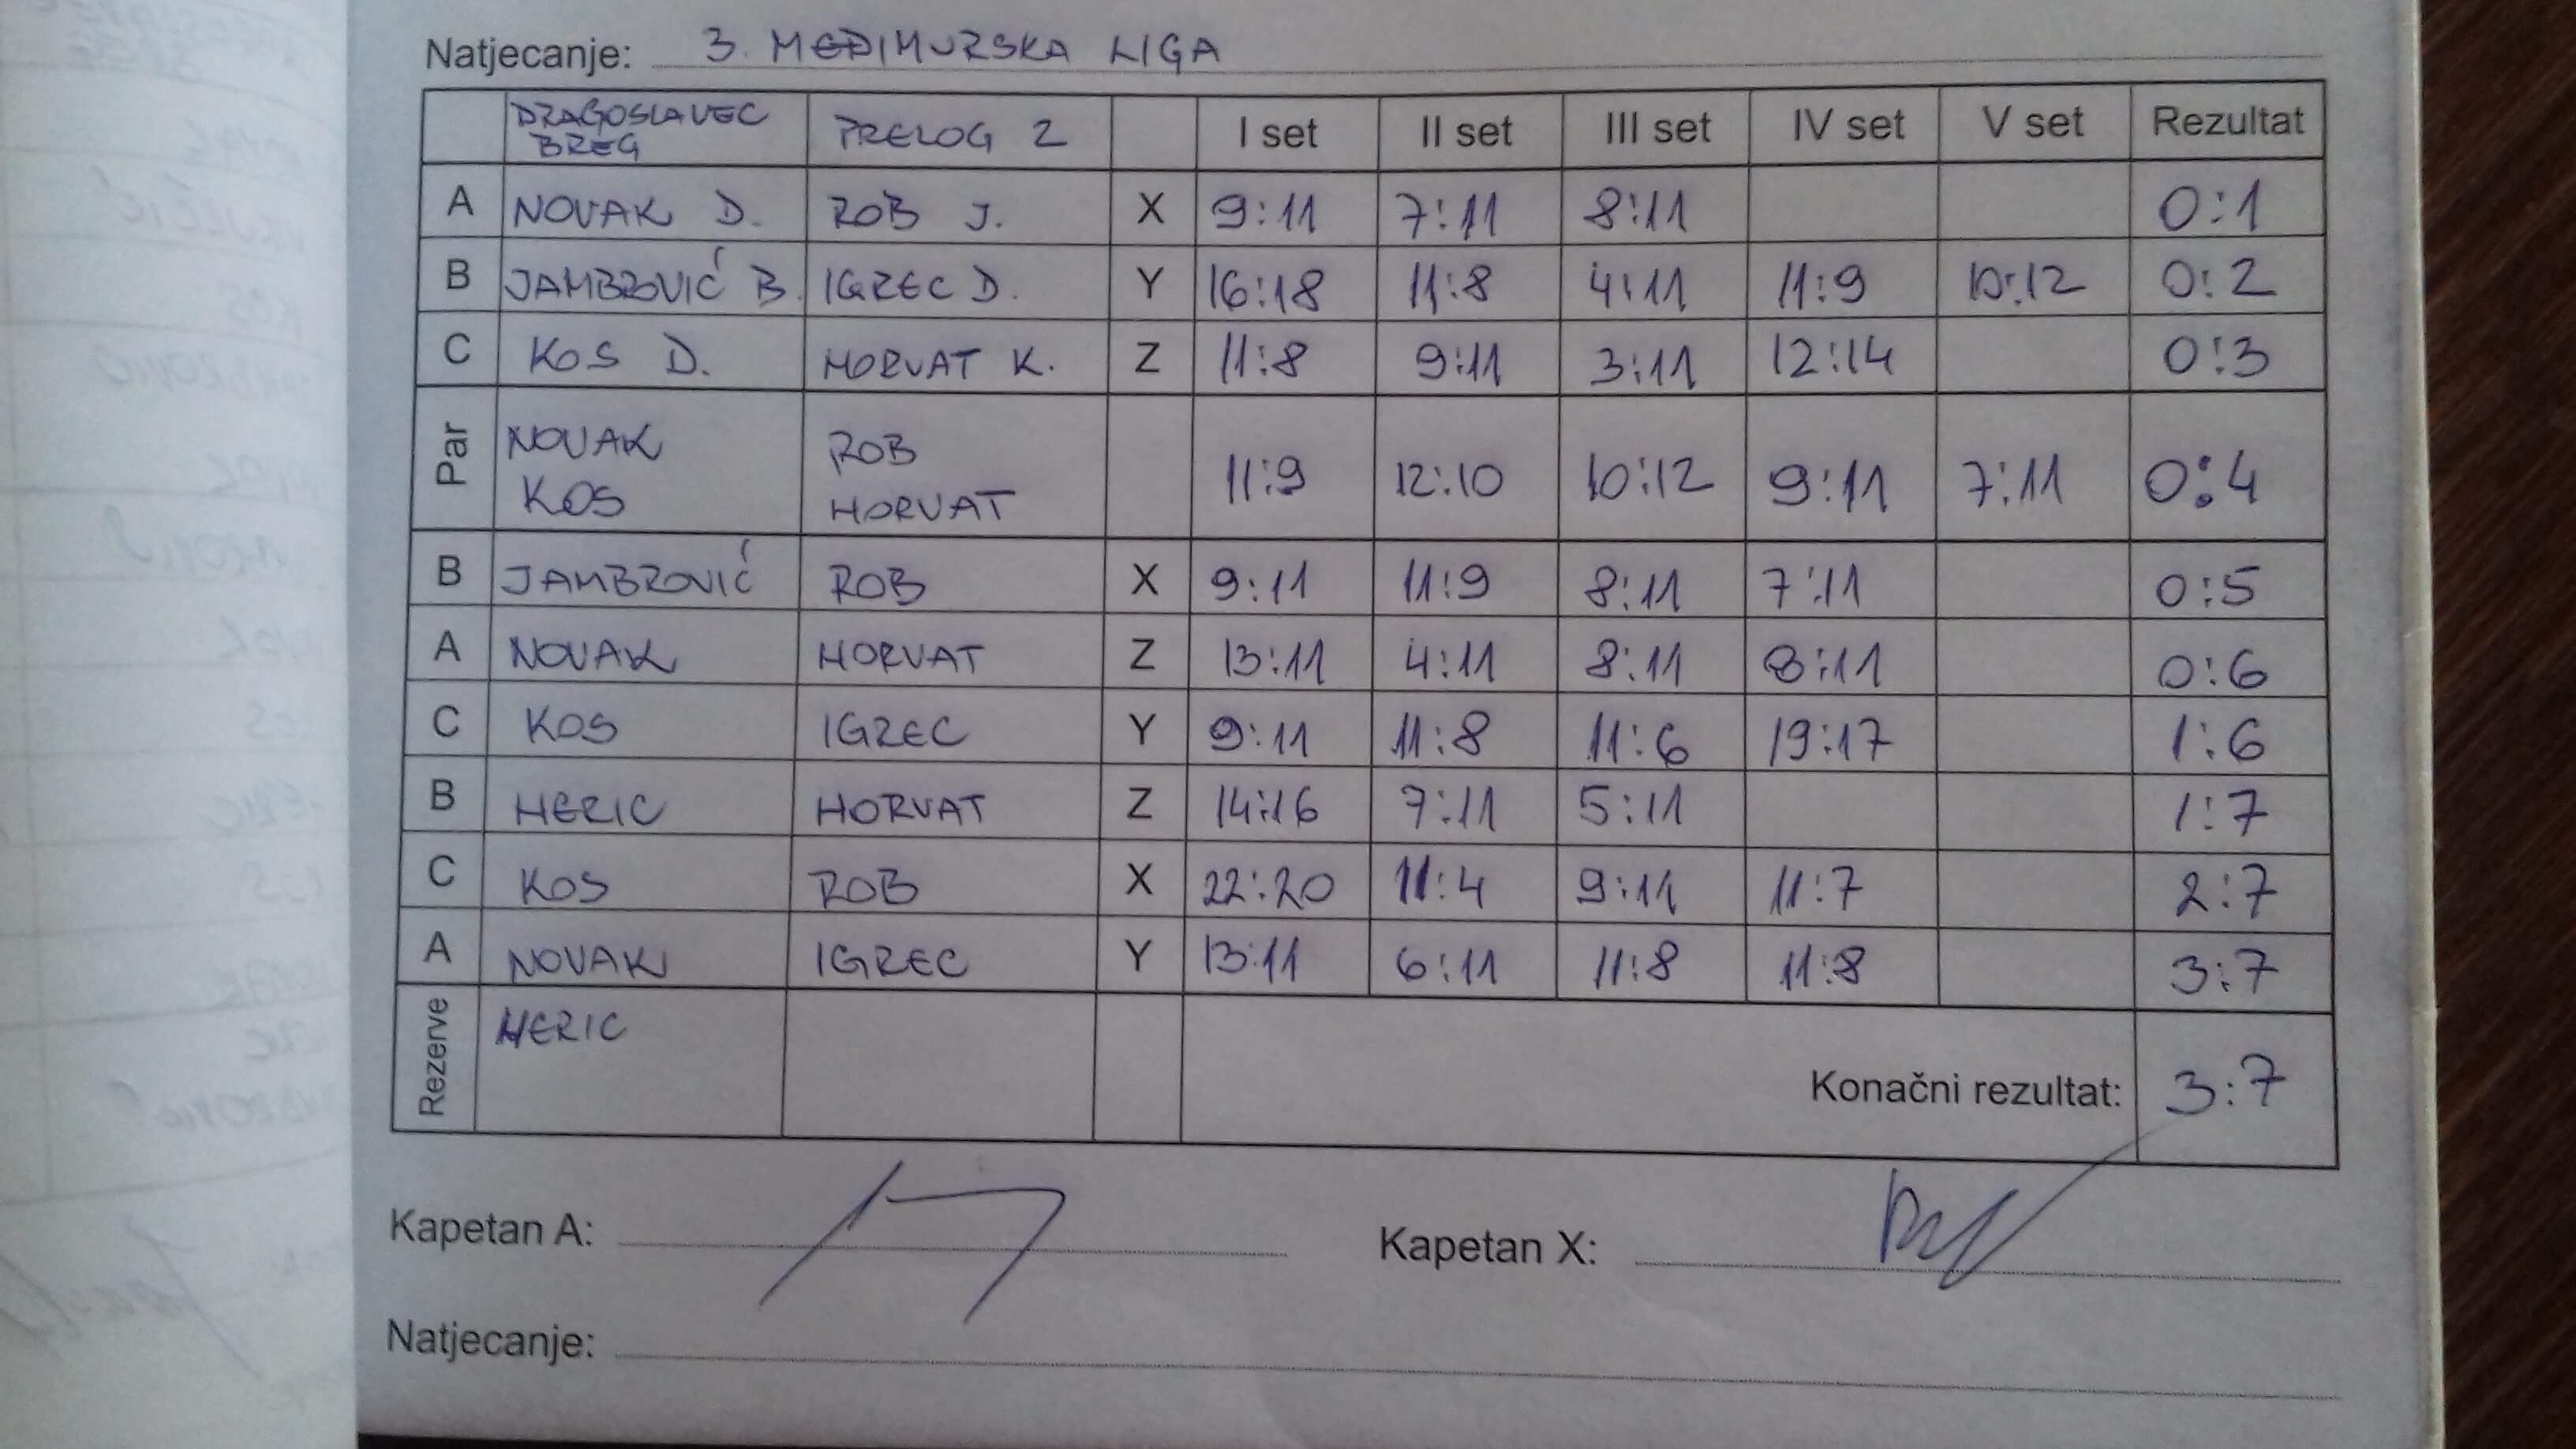 Natjecanje: 3. MEĐIMURSKA LIGA
DRAGOSLAVEC BREG PRELOG 2 I set II set III set IV set V set Rezultat
A NOVAK D. ROB J. X 9:11 7:11 8:11 0:1
B JAMBROVIĆ B. IGREC D. Y 16:18 11:8 4:11 11:9 10:12 0:2
C KOS D. HORVAT K. Z 11:8 9:11 3:11 12:14 0:3
Par NOVAK KOS ROB HORVAT 11:9 12:10 10:12 9:11 7:11 0:4
B JAMBROVIĆ ROB X 9:11 11:9 8:11 7:11 0:5
A NOVAK HORVAT Z 13:11 4:11 8:11 8:11 0:6
C KOS IGREC Y 9:11 11:8 11:6 19:17 1:6
B HERIC HORVAT Z 14:16 7:11 5:11 1:7
C KOS ROB X 22:20 11:4 9:11 11:7 2:7
A NOVAK IGREC Y 13:11 6:11 11:8 11:8 3:7
Rezerve HERIC
Konačni rezultat: 3:7
Kapetan A: Kapetan X:
Natjecanje: